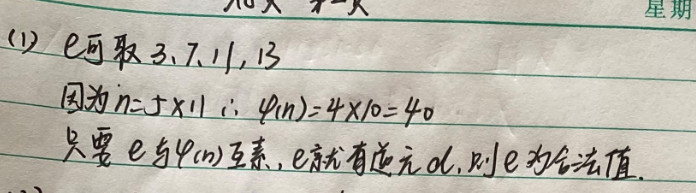 星期
(1) e可取 3、7、11, 13
因为 n=5×11 ∴ φ(n)=4×10=40
只要 e 与φ(n)互素, e就有逆元 d, 则 e 为合法值.